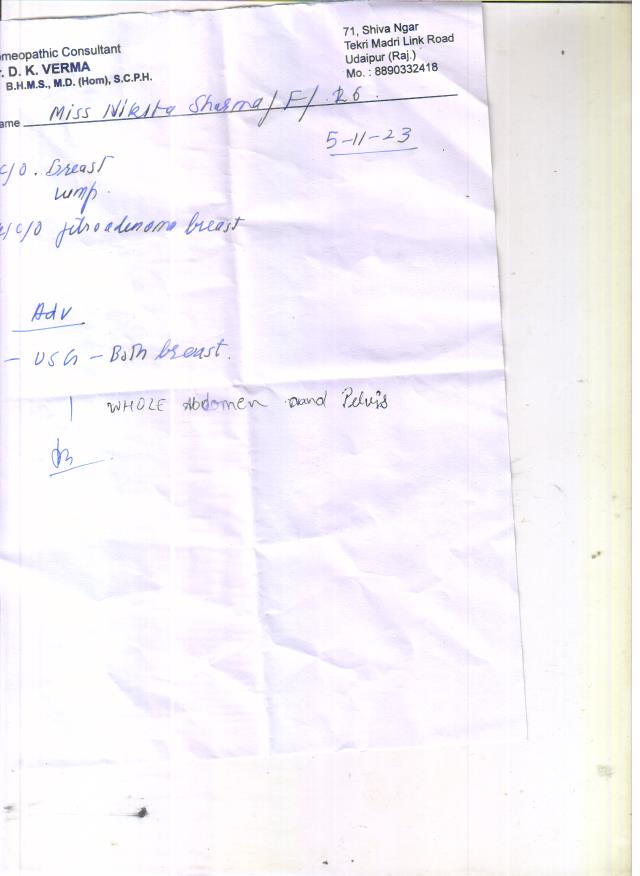 meopathic Consultant
. D. K. VERMA
B.H.M.S., M.D. (Hom), S.C.P.H.
71, Shiva Ngar
Tekri Madri Link Road
Udaipur (Raj.)
Mo. : 8890332418
ame Miss Nikita Sharma/F/ 26
5-11-23
C/O. Breast
lump.
K/C/O fibroadenoma breast
Adv
- USG - Both breast.
WHOLE Abdomen and Pelvis